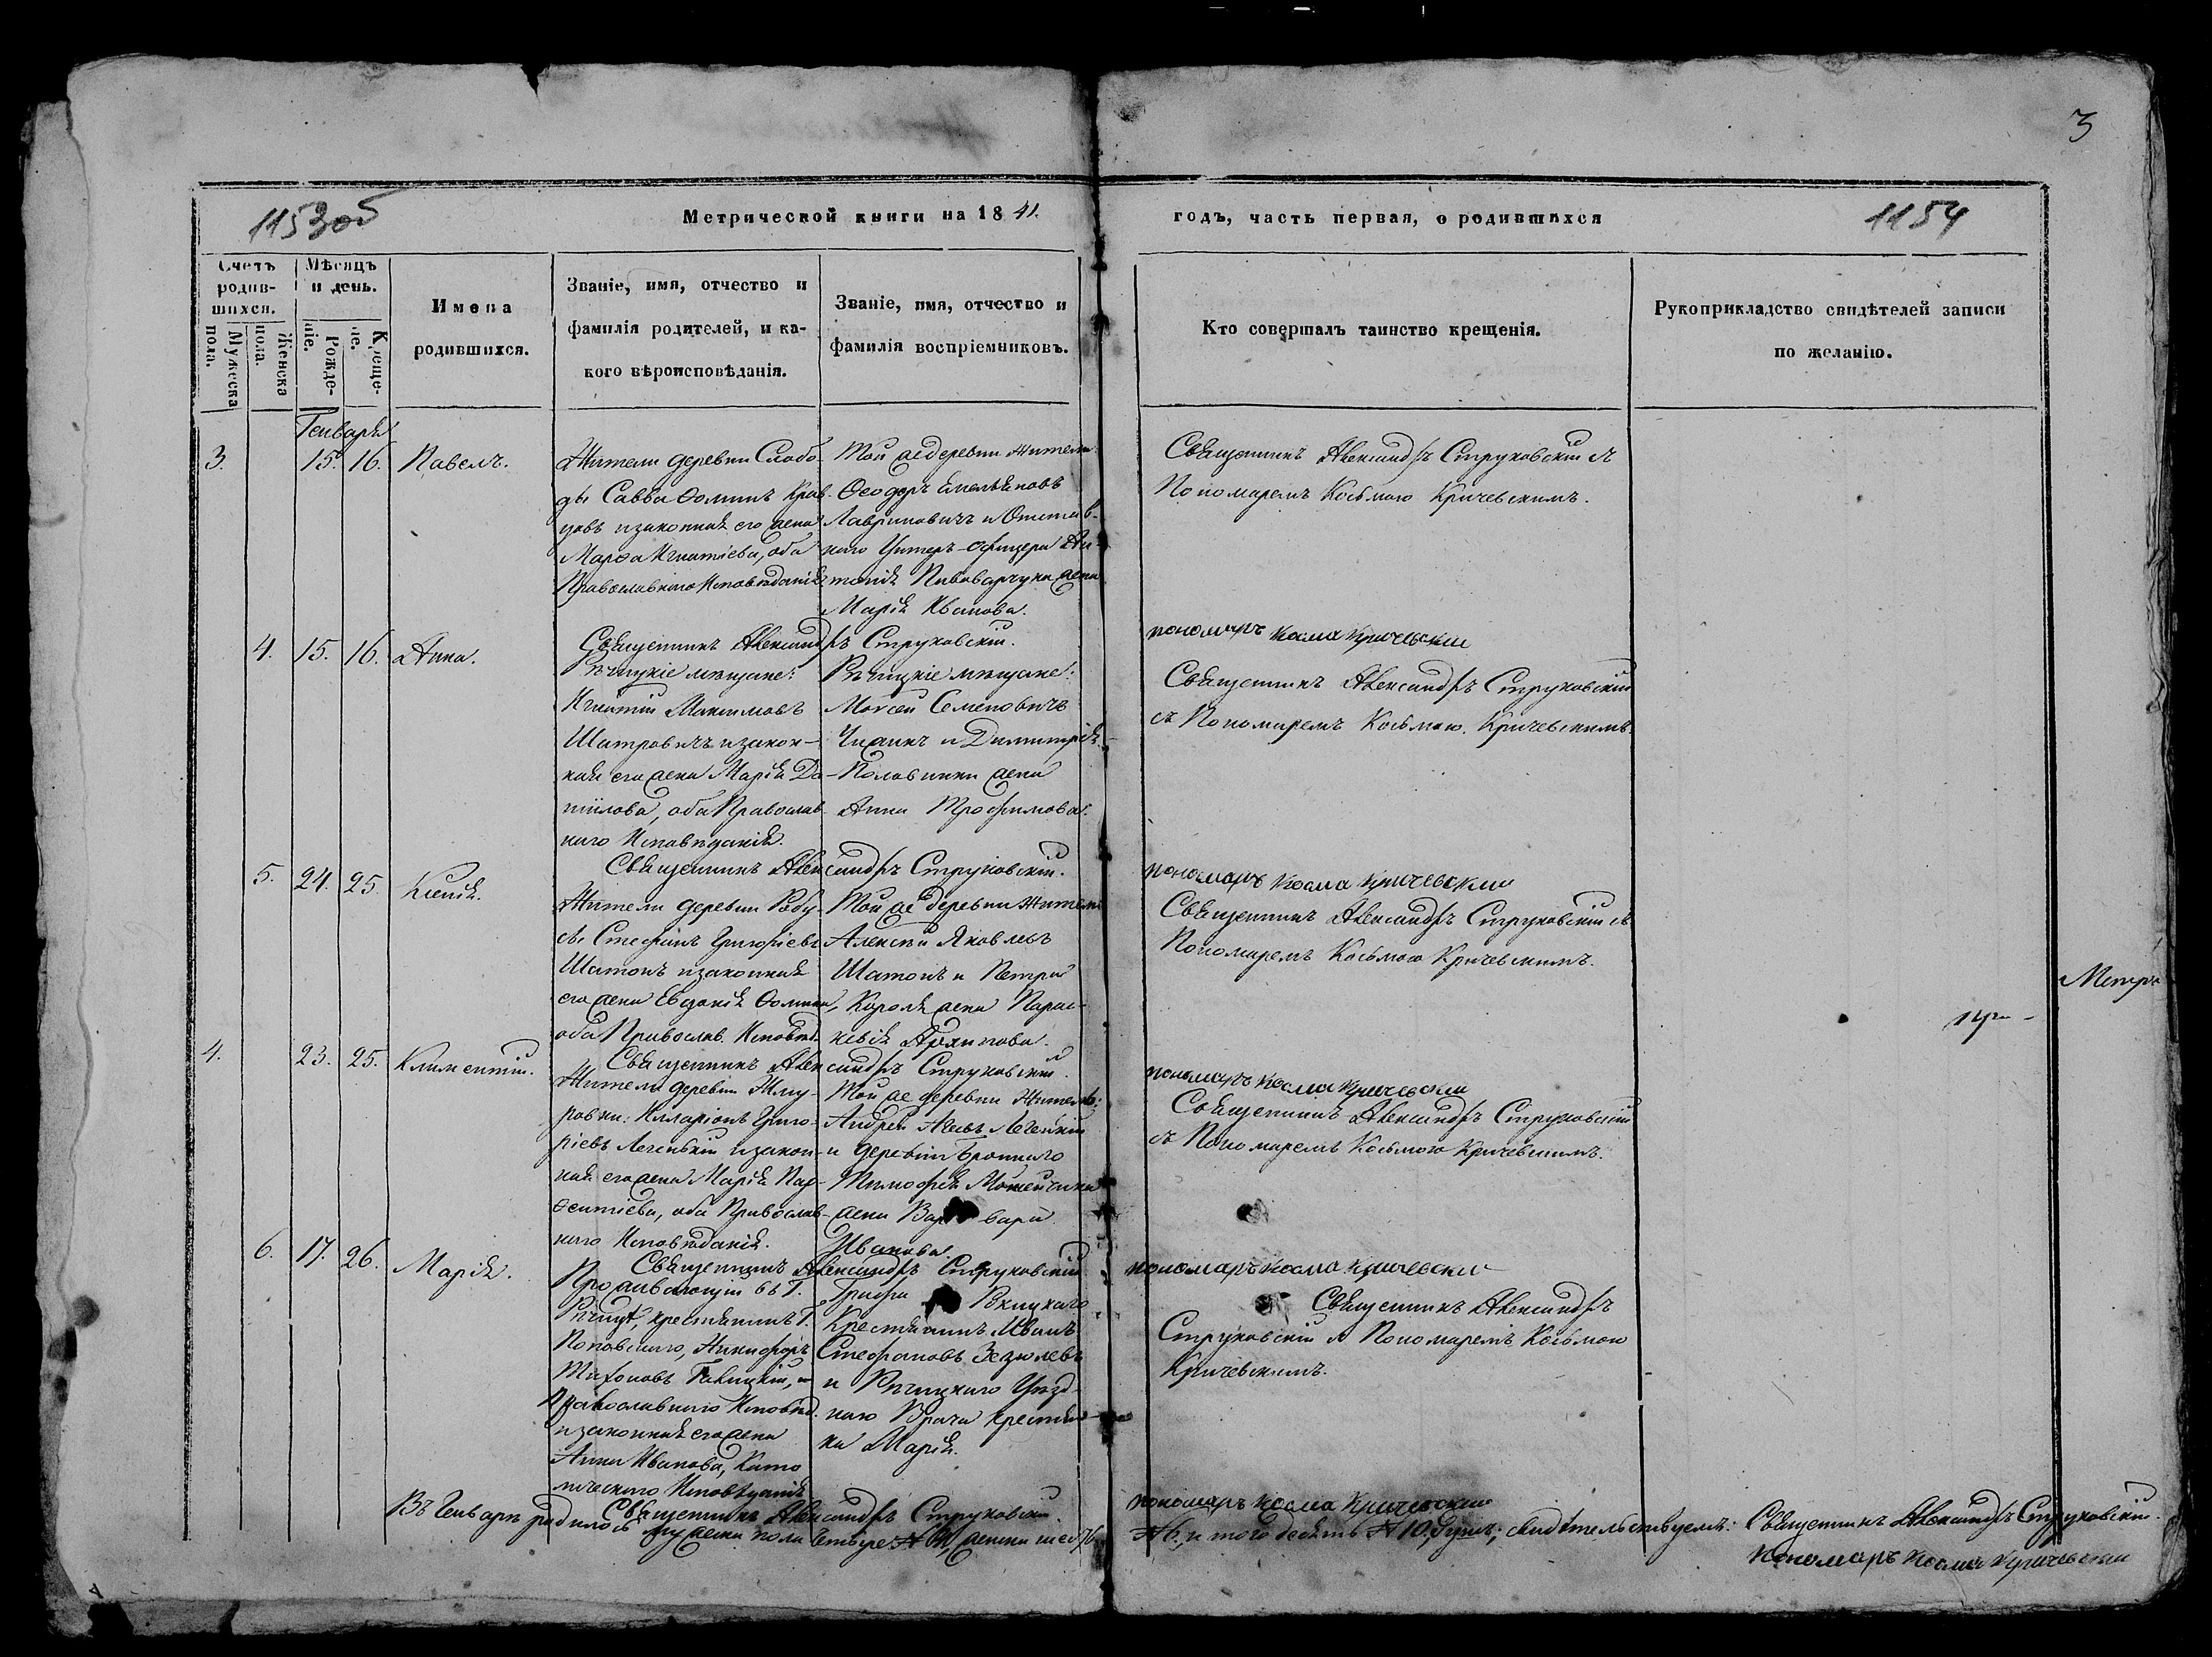 3
1153об
Метрической книги на 1841.
годъ, часть первая, о родившихся
1154
Счетъ родив-шихся.
Мужеска пола.
Женска пола.
Мѣсяцъ и день.
Рожде-ніе.
Креще-ніе.
Имена
родившихся.
Званіе, имя, отчество и
фамилія родителей, и ка-
кого вѣроисповѣданія.
Званіе, имя, отчество и
фамилія воспріемниковъ.
Кто совершалъ таинство крещенія.
Рукоприкладство свидѣтелей записи
по желанію.
Генваря
3. 15. 16. Павелъ.
Жители деревни Слобо-
ды Савва Ѳоминъ Крав-
цовъ и законная его жена
Марѳа Игнатіева, оба
Православнаго Исповѣданія
Той же деревни жители
Ѳеодоръ Емельяновъ
Лавриновичъ и Отстав-
наго Унтеръ-офицера Ан-
тонія Пивоварчука жена
Марія Иванова.
Священникъ Александръ Струковскій съ
Пономаремъ Косьмою Кричевскимъ.
Священникъ Александръ Струковскій.
пономаръ Косма Кричевскии
4. 15. 16. Анна.
Рѣчицкіе мѣщане:
Игнатій Максимовъ
Шатровичъ и закон-
ная его жена Марія Да-
ниілова, оба Православ-
наго Исповѣданія.
Рѣчицкіе мѣщане:
Моисей Семеновичъ
Чижикъ и Димитрія
Половинки жена
Анна Трофимова.
Священникъ Александръ Струковскій
съ Пономаремъ Косьмою Кричевскимъ.
Священникъ Александръ Струковскій.
пономаръ Косма Кричевскии
5. 24. 25. Ксенія.
Жители деревни
Стефанъ Григоріевъ
Шатонъ и законная
его жена Евдокія Ѳомина,
оба Православ. Исповѣд.
Той же деревни жители
Алексѣй Яковлевъ
Шатонъ и Петра
Короля жена Парас-
кевія Архипова.
Священникъ Александръ Струковскій съ
Пономаремъ Косьмою Кричевскимъ.
Священникъ Александръ Струковскій.
пономаръ Косма Кричевскии
4. 23. 25. Климентій.
Жители деревни Жму-
ровки: Илларіонъ Григо-
ріевъ Легенькій и закон-
ная его жена Марія Пар-
ѳентіева, оба Православ-
наго Исповѣданія.
Той же деревни житель:
Андрей Легенькій
и деревни Броннаго
Тимоѳея
жена Варвара
Иванова.
Священникъ Александръ Струковскій
съ Пономаремъ Косьмою Кричевскимъ.
Священникъ Александръ Струковскій.
пономаръ Косма Кричевски
6. 17. 26. Марія.
Проживающій въ Г.
Рѣчицѣ, крестьянинъ Г.
Поповскаго, Никифоръ
Тихоновъ
Православнаго Исповѣд.
и законная его жена
Анна Иванова, Като-
лическаго Исповѣданія
Графа
Крестьянинъ Иванъ
Стефановъ Зезюлевъ
и Рѣчицкаго Уѣзд-
наго Врача крестьян-
ка Марія.
Священникъ Александръ
Струковскій съ Пономаремъ Косьмою
Кричевскимъ.
Священникъ Александръ Струковскій.
пономаръ Косма Кричевскии
Въ Генварѣ родилось мужеска пола четыре № 4, женска шесть
№ 6, и того десять № 10, душъ; свидѣтельствуемъ: Священникъ Александръ Струковскій.
пономаръ Косма Кричевскии